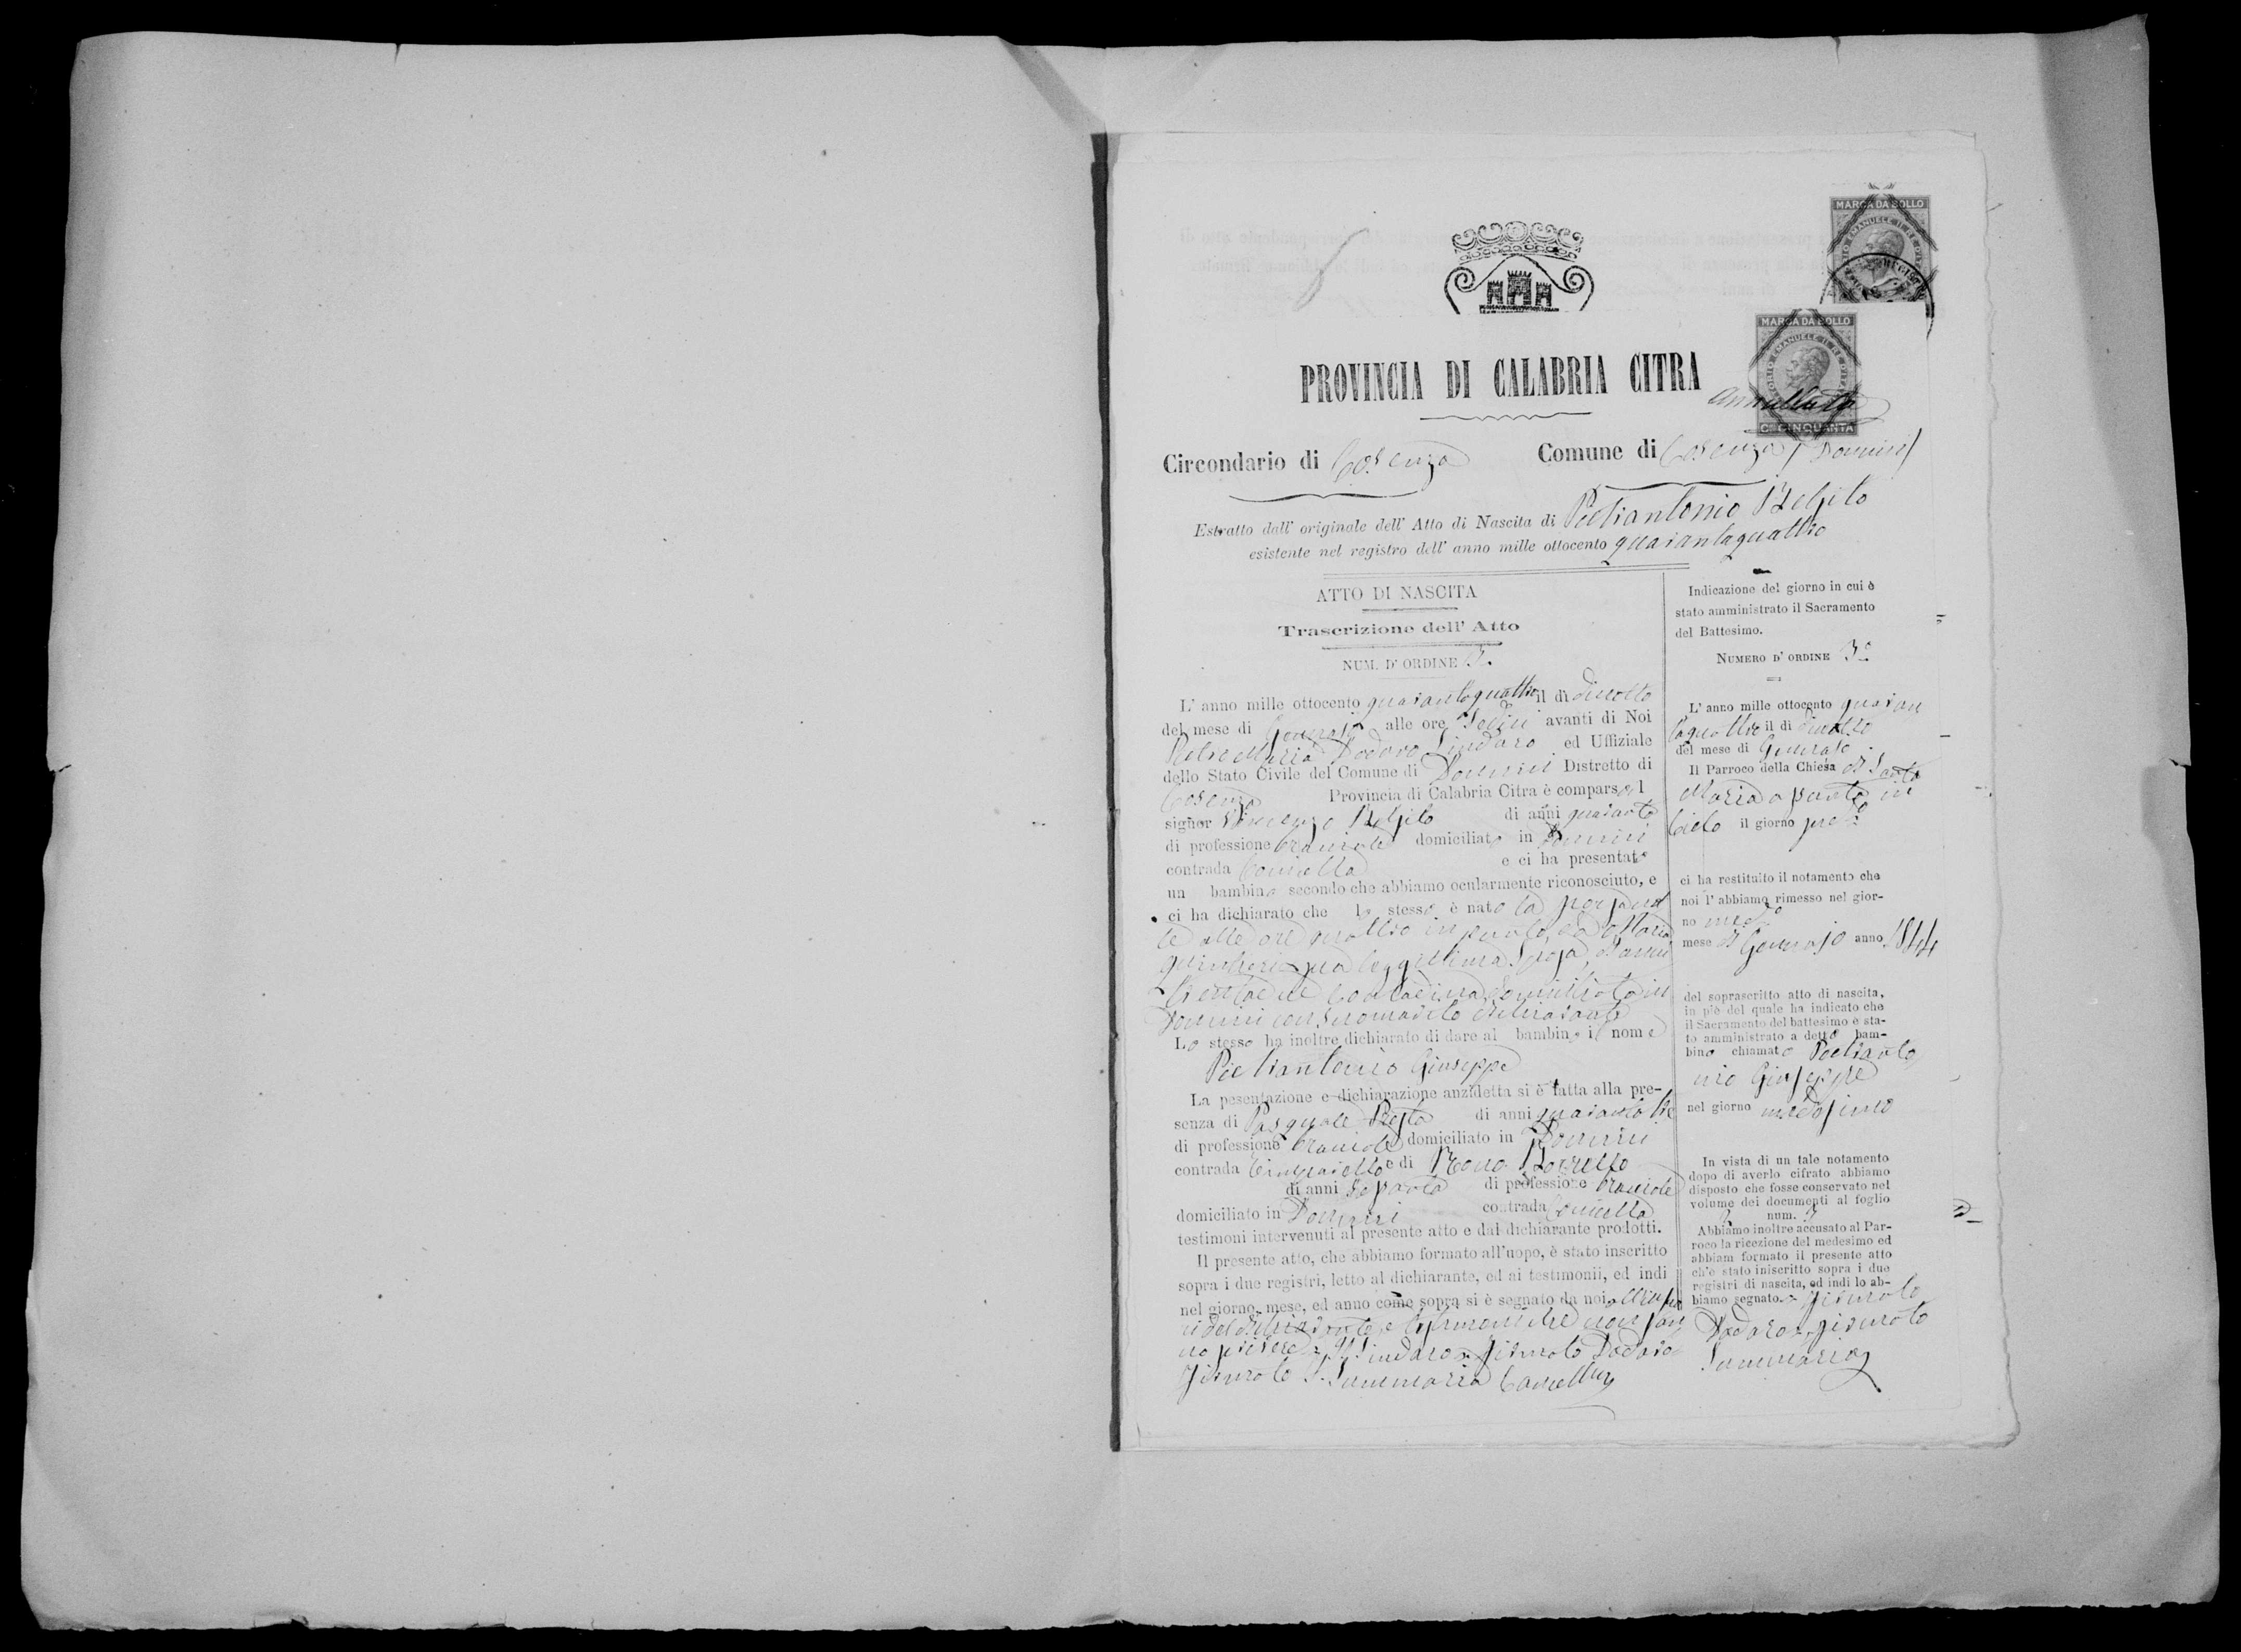 MARCA DA BOLLO
MARCA DA BOLLO
EMANUELE II RE D'ITALIA
Annullata
C.MI CINQUANTA
PROVINCIA DI CALABRIA CITRA
Circondario di Cosenza Comune di Cosenza (Donnici)
Estratto dall' originale dell' Atto di Nascita di Pietrantonio Belfito
esistente nel registro dell' anno mille ottocento quarantaquattro
ATTO DI NASCITA
Trascrizione dell' Atto
NUM. D' ORDINE 3.
L' anno mille ottocento quarantaquattro il dì diciotto
del mese di Gennajo alle ore sedici avanti di Noi
Pietro Maria Dodaro Sindaco ed Uffiziale
dello Stato Civile del Comune di Donnici Distretto di
Cosenza Provincia di Calabria Citra è comparso l
signor Vincenzo Belfito di anni quaranta
di professione bracciale domiciliato in Donnici
contrada e ci ha presentato
un bambino secondo che abbiamo ocularmente riconosciuto, e
ci ha dichiarato che lo stesso è nato
alle ore quattro in punto, da Maria
sua leggittima sposa, d'anni
contadina domiciliata in
Donnici con suo marito dichiarante
Lo stesso ha inoltre dichiarato di dare al bambino il nome
Pietrantonio Giuseppe
La pesentazione e dichiarazione anzidetta si è fatta alla pre-
senza di Pasquale di anni quarantatre
di professione bracciale domiciliato in Donnici
contrada e di
di anni sessanta di professione bracciale
domiciliato in Donnici contrada
testimoni intervenuti al presente atto e dal dichiarante prodotti.
Il presente atto, che abbiamo formato all'uopo, è stato inscritto
sopra i due registri, letto al dichiarante, ed ai testimonii, ed indi
nel giorno, mese, ed anno come sopra si è segnato da noi
del dichiarante, e testimoni che non san
no scrivere = Il Sindaco = firmato Dodaro
firmato Summaria
Indicazione del giorno in cui è
stato amministrato il Sacramento
del Battesimo.
NUMERO D' ORDINE 3°
L' anno mille ottocento quaran
taquattro il dì diciotto
del mese di Gennajo
Il Parroco della Chiesa di Santa
Maria assunta in
Cielo il giorno
ci ha restituito il notamento che
noi l' abbiamo rimesso nel gior-
no med.o
mese di Gennajo anno 1844
del soprascritto atto di nascita,
in piè del quale ha indicato che
il Sacramento del battesimo è sta-
to amministrato a detto bam-
bino chiamato Pietranto
nio Giuseppe
nel giorno medesimo
In vista di un tale notamento
dopo di averlo cifrato abbiamo
disposto che fosse conservato nel
volume dei documenti al foglio
num. 3
Abbiamo inoltre accusato al Par-
roco la ricezione del medesimo ed
abbiam formato il presente atto
ch'è stato iniscritto sopra i due
registri di nascita, ed indi lo ab-
biamo segnato. = firmato
Dodaro = firmato
Summaria